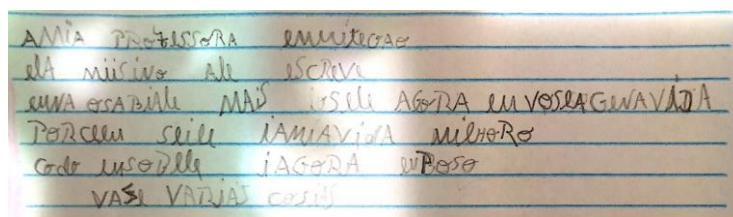 AMIA PROFESSORA enuitegao
elA niisino Ale escreve
euna osabiale MAis iosele AGORA eu voseagenaVIDA
Porceeu seile iAMiAVida melhoro
Codo eusoBele iAGORA euPoso
VASe VARIAS cosias